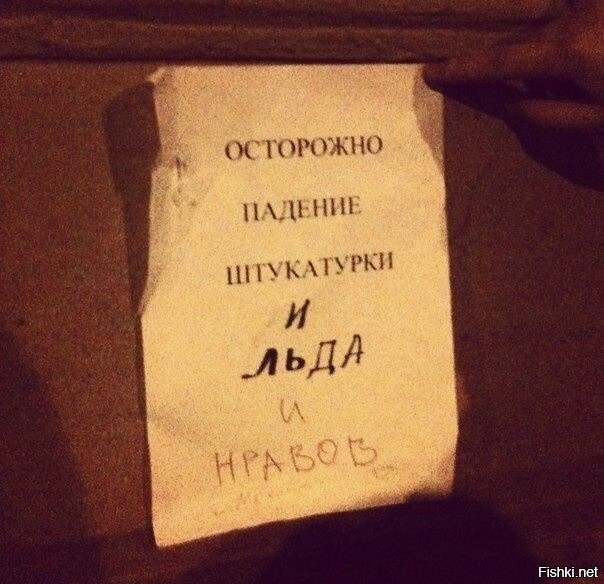 ОСТОРОЖНО
ПАДЕНИЕ
ШТУКАТУРКИ
И
ЛЬДА
И
НРАВОВ
Fishki.net